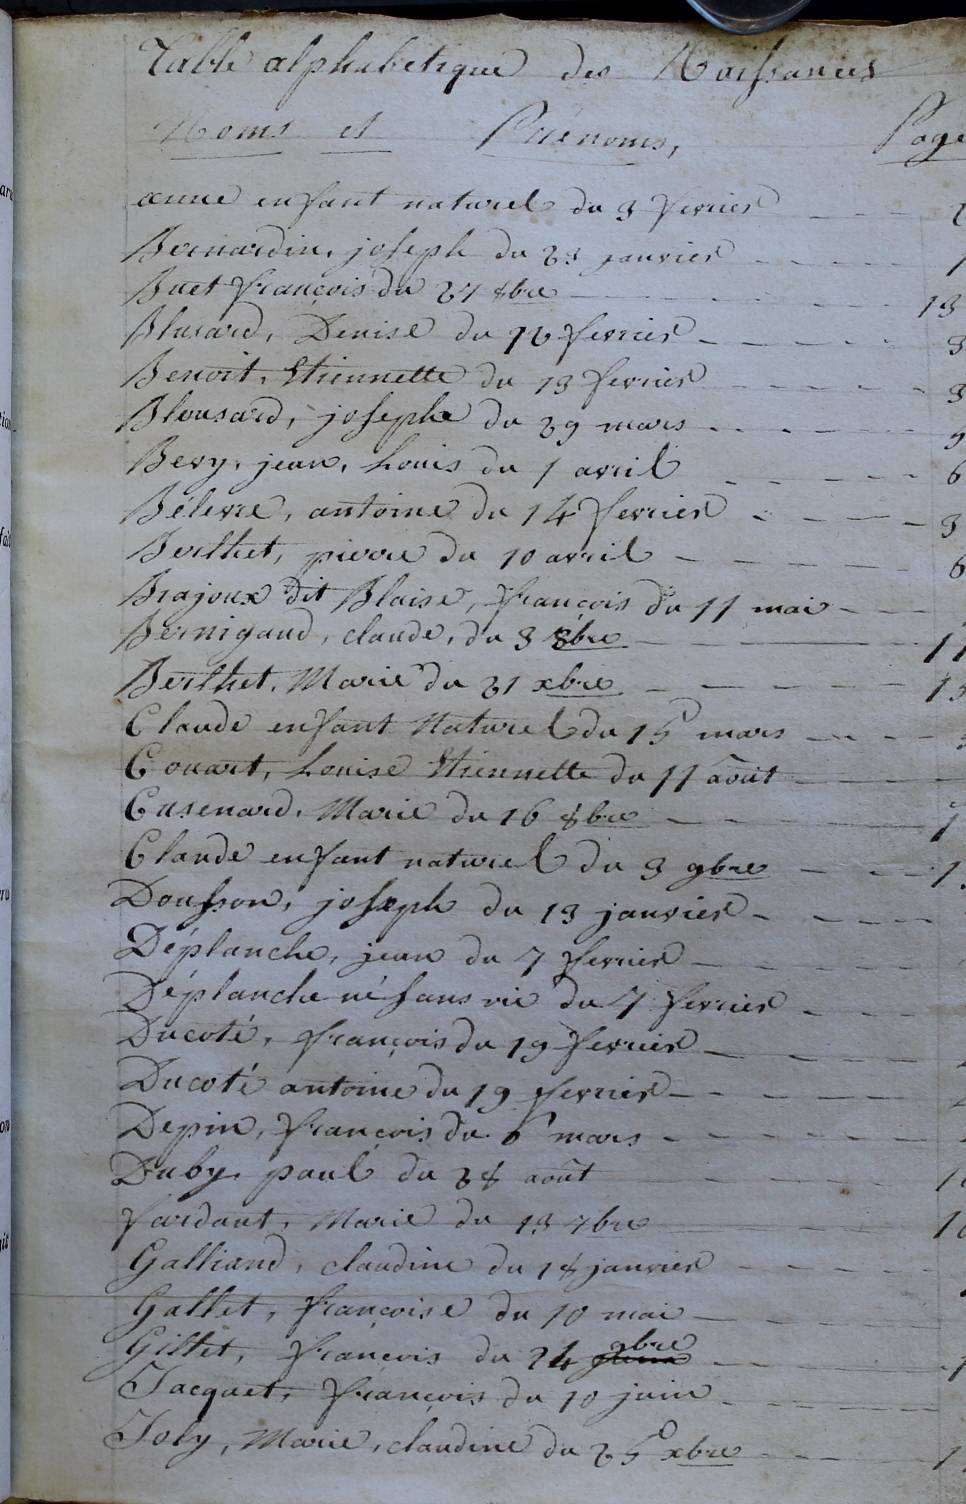 Table alphabetique des Naissances
Noms et Prénoms, Page
anne enfant naturel du 3 fevrier
Bernardin, joseph du 23 janvier 1
Buet françois du 27 8bre 13
Blusard, Denise du 12 fevrier 3
Benoit, Etiennette du 13 fevrier 3
Blousard, josephe du 29 mars 5
Bery, jean, Louis du 1 avril 6
Bélevre, antoine du 14 fevrier 3
Berthet, pierre du 10 avril 6
Brajoux dit Blaise, françois du 11 mai
Bernigaud, claude, du 3 8bre 11
Berthet, Marie du 21 xbre 15
Claude enfant Naturel du 15 mars
Couart, Louise Etiennette du 11 août
Cusenard, Marie du 16 8bre 1
Claude enfant naturel du 3 9bre 1
Dousson, joseph du 13 janvier
Déplanche, jean du 7 fevrier
Déplanche né sans vie du 7 fevrier
Ducoté, françois du 19 fevrier
Ducoté antoine du 19 fevrier
Depin, françois du 6 mars
Duby, paul du 28 août 10
fardant, Marie du 13 7bre 10
Galliand, claudine du 18 janvier
Gallet, françoise du 10 mai
Gillet, françois du 24 9bre
Jacquet, françois du 10 juin
Joly, Marie, claudine du 25 xbre 1